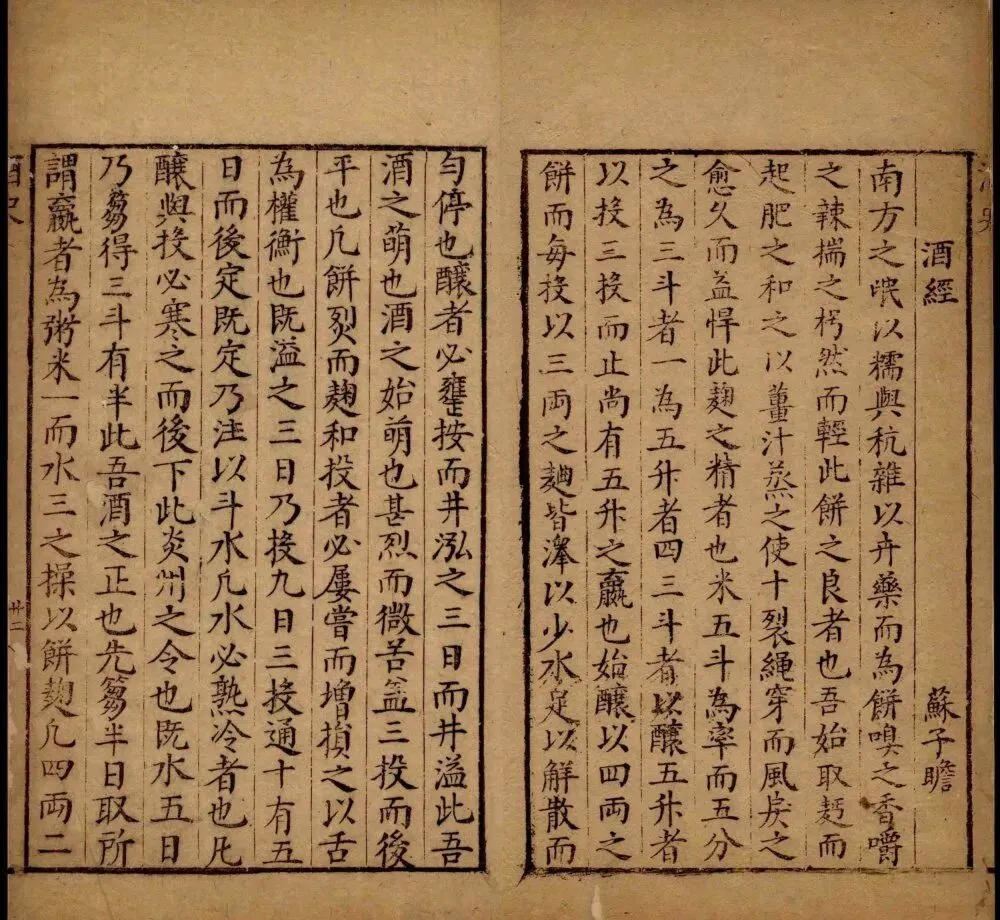 酒經 蘇子瞻
南方之氓以糯與秔雜以卉藥而為餅嗅之香嚼
之辣揣之枵然而輕此餅之良者也吾始取麪而
起肥之和之以薑汁蒸之使十裂繩穿而風戾之
愈久而益悍此麹之精者也米五斗為率而五分
之為三斗者一為五升者四三斗者以釀五升者
以投三投而止尚有五升之贏也始釀以四両之
餅而每投以三両之麹皆澤以少水足以解散而
勻停也釀者必甕按而井泓之三日而井溢此吾
酒之萌也酒之始萌也甚烈而微苦盖三投而後
平也凡餅烈而麹和投者必屢嘗而增損之以舌
為權衡也既溢之三日乃投九日三投通十有五
日而後定既定乃注以斗水凡水必熟冷者也凡
釀與投必寒之而後下此炎州之令也既水五日
乃蒭得三斗有半此吾酒之正也先蒭半日取所
謂贏者為粥米一而水三之操以餅麹凡四両二
廿二